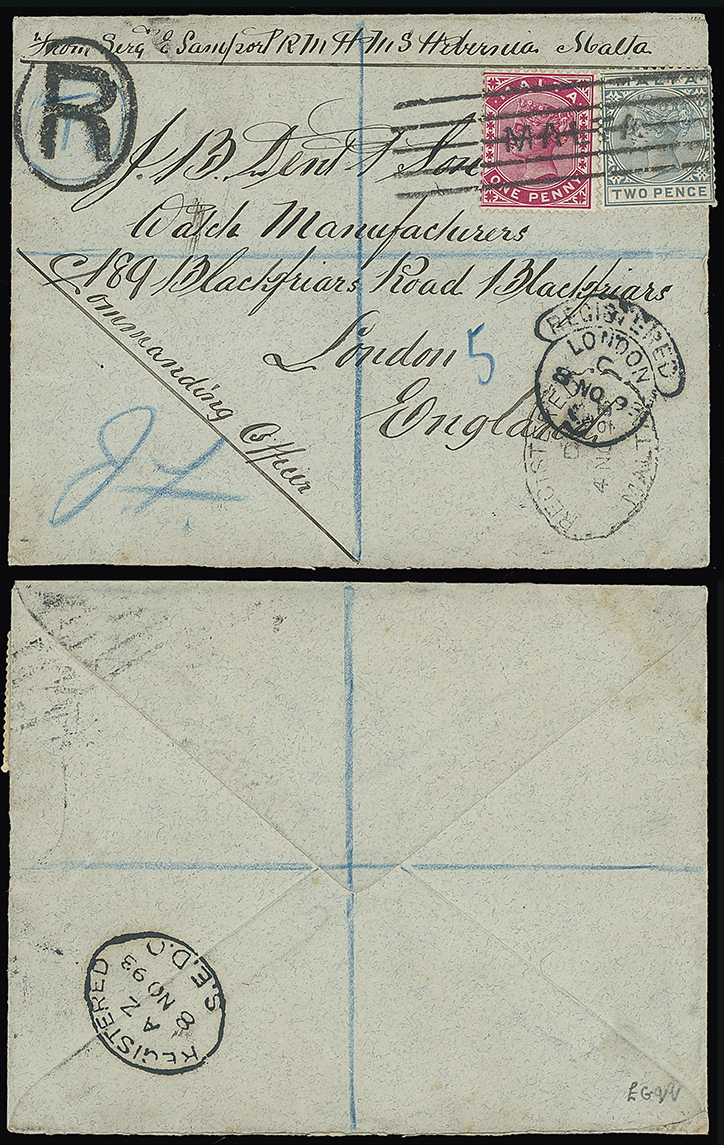 From Serg E Samford R M H M S Hibernia Malta
R
MALTA
ONE PENNY
MALTA
TWO PENCE
MALTA
J. B. Dent & Son
Watch Manufacturers
189 Blackfriars Road Blackfriars
London
England
5
Commanding Officer
REGISTERED
LONDON
8 NO 93
REGISTERED
4 NO
MALTA
REGISTERED
AZ
8 NO 93
S.E.D.O